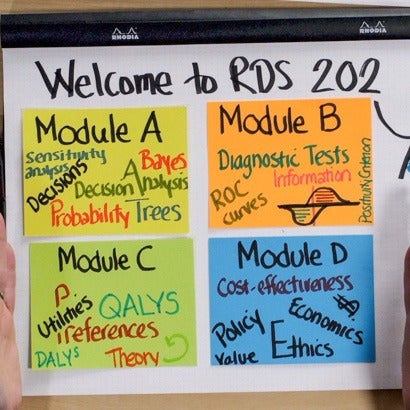 RHODIA
RHODIA
Welcome to RDS 202
Module A
Sensitivity
analysis
Bayes
Decisions
Decision Analysis
Probability Trees
Module B
Diagnostic Tests
Information
ROC
curves
Positivity Criterion
Module C
Utilities
QALYS
Preferences
DALYs
Theory
Module D
Cost-effectiveness
$
Economics
Policy
Value
Ethics